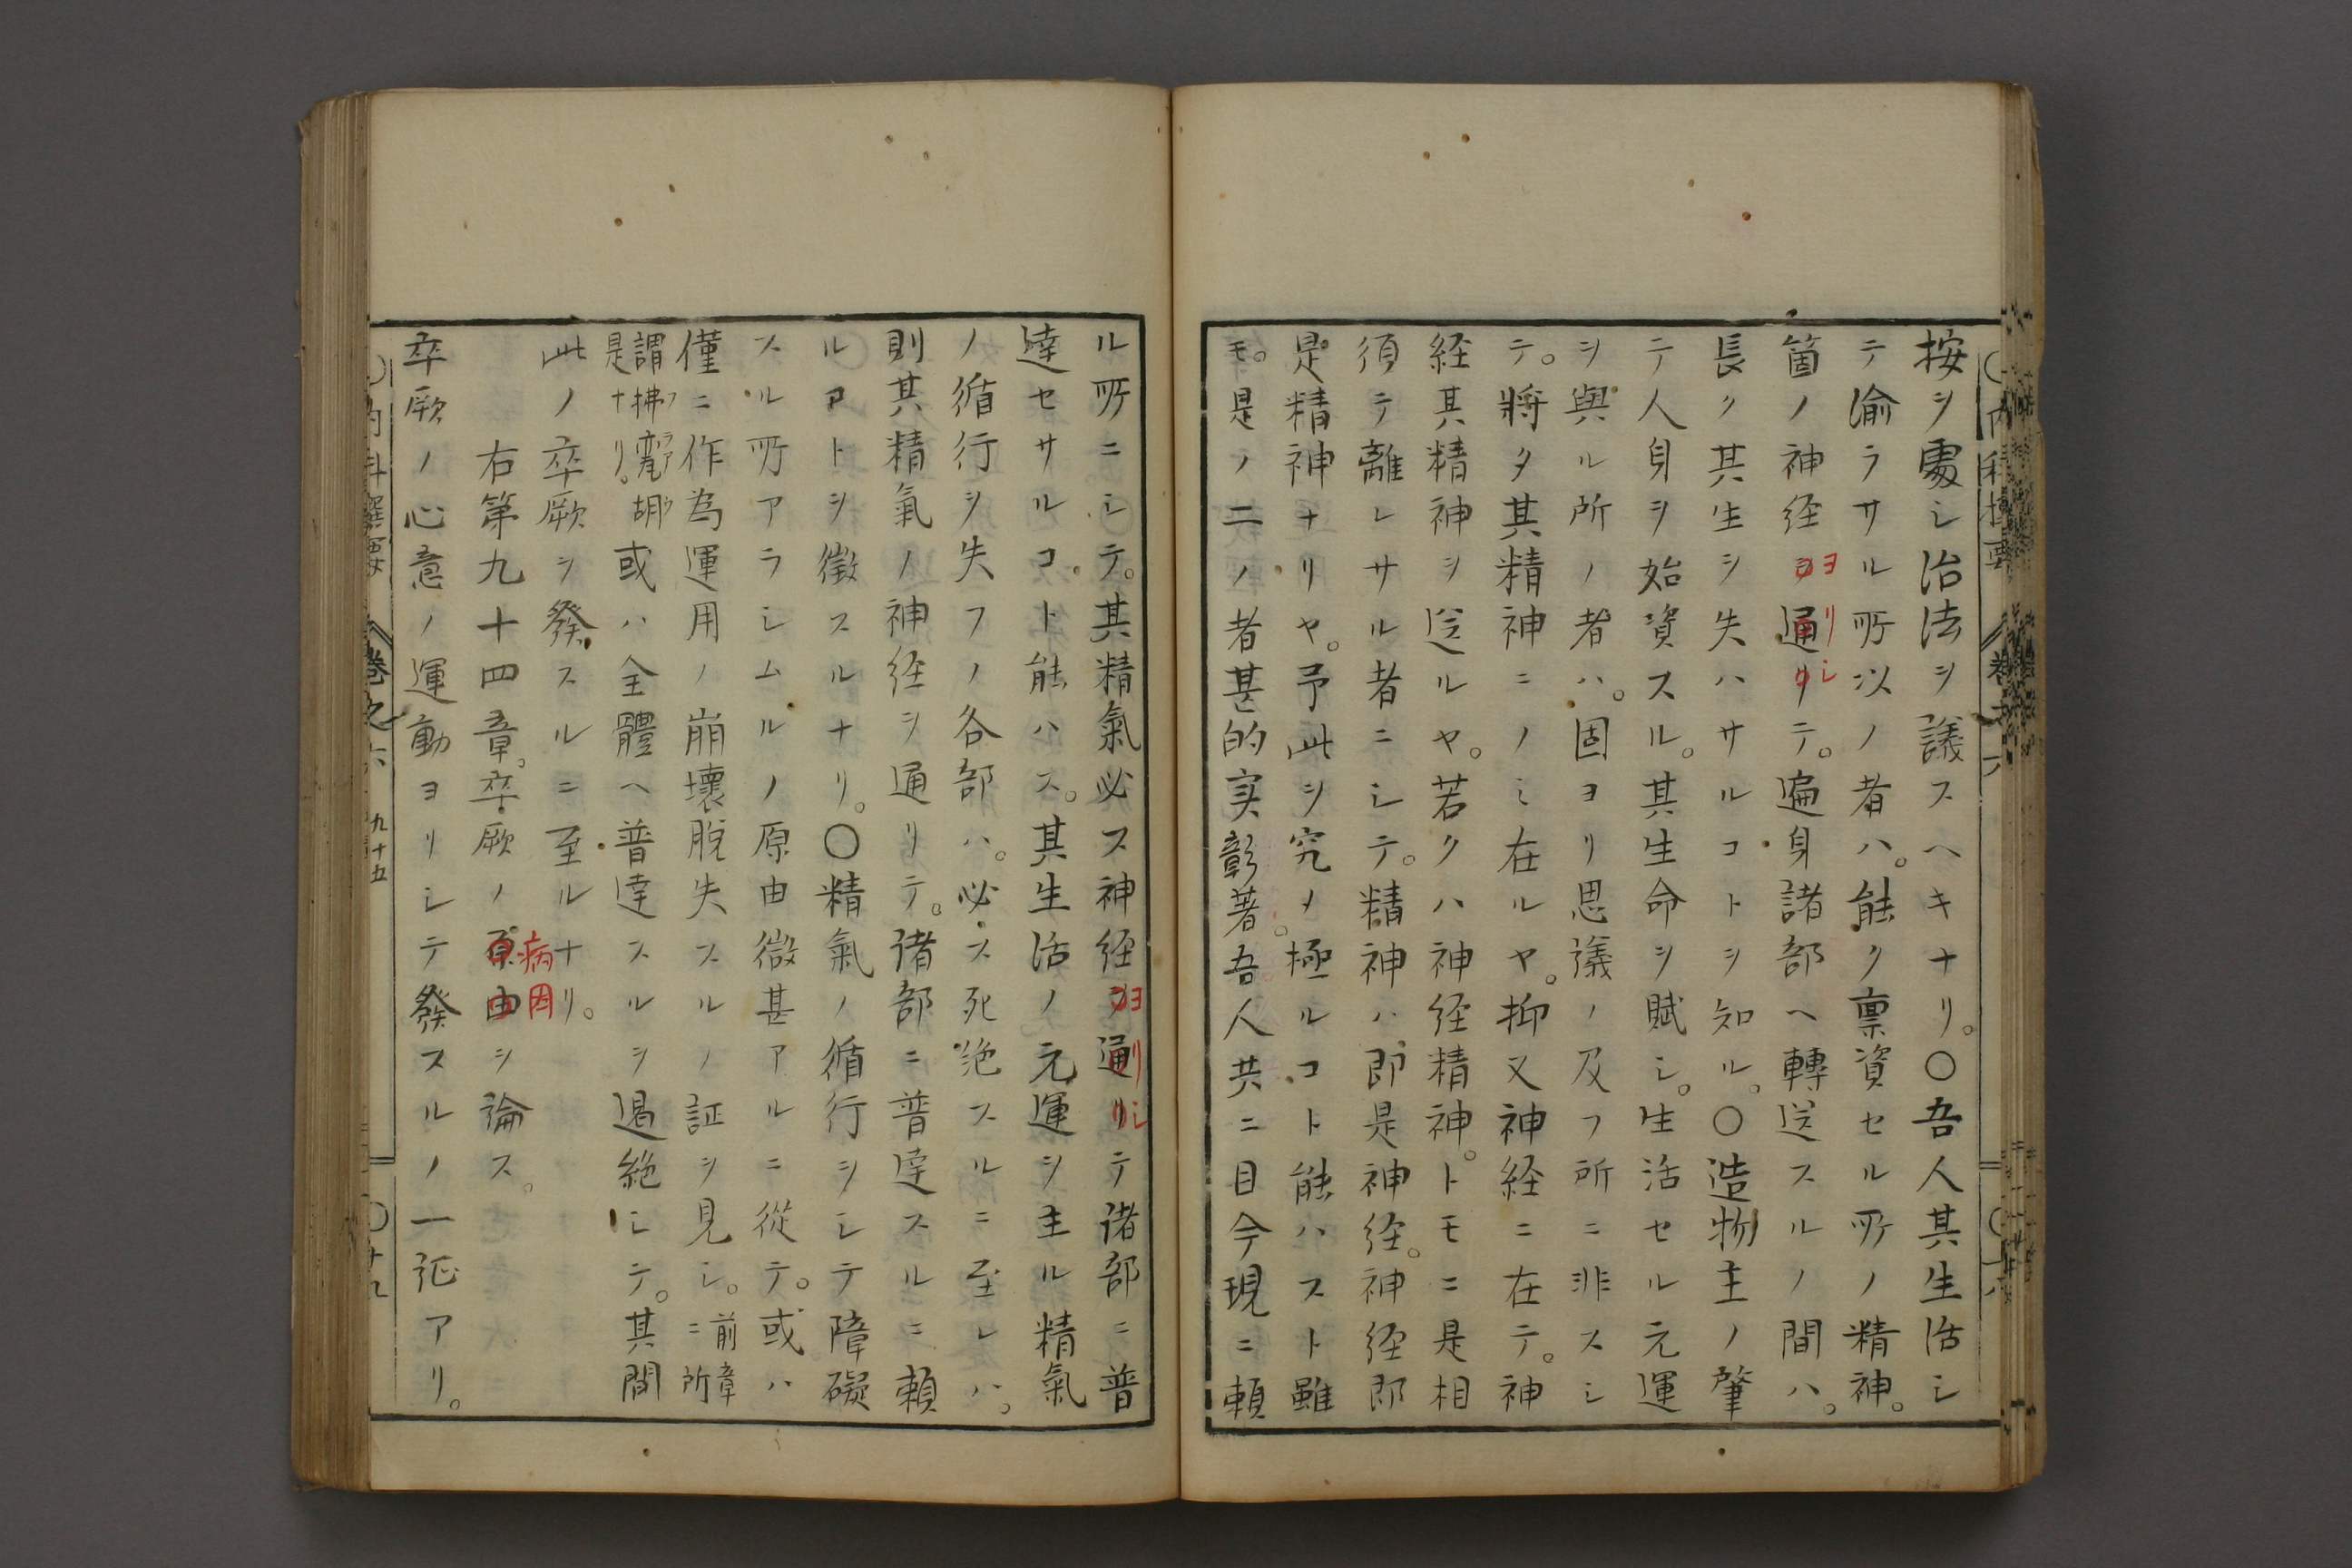 按シ處シ治法ヲ議スヘキナリ。〇吾人其生活シ
テ渝ラサル所以ノ者ハ。能ク禀資セル所ノ精神。
箇ノ神経ヨリシヲ通リテ。遍身諸部ヘ轉送スルノ間ハ。
長ク其生ヲ失ハサルコトヲ知ル。〇造物主ノ肇
テ人身ヲ始資スル。其生命ヲ賦シ。生活セル元運
ヲ與ル所ノ者ハ。固ヨリ思議ノ及フ所ニ非スシ
テ。將タ其精神ニノミ在ルヤ。抑又神経ニ在テ。神
経其精神ヲ送ルヤ。若クハ神経精神。トモニ是相
須テ離レサル者ニシテ。精神ハ即是神経。神経即
是精神ナリヤ。予此ヲ究メ極ルコト能ハスト雖
モ。是ノ二ノ者甚的実彰著。吾人共ニ目今現ニ頼
ル所ニシテ。其精氣必ス神経ヨリシヲ通リテ諸部ニ普
達セサルコト能ハス。其生活ノ元運ヲ主ル精氣
ノ循行ヲ失フノ各部ハ。必ス死絶スルニ至レハ。
則其精氣ノ神経ヲ通リテ。諸部ニ普達スルニ頼
ルコトヲ徴スルナリ。〇精氣ノ循行ヲシテ障礙
スル所アラシムルノ原由微甚アルニ從テ。或ハ
僅ニ作為運用ノ崩壞脱失スルノ証ヲ見シ。前章ニ所
謂拂蘭胡是ナリ。或ハ全體ヘ普達スルヲ遏絶シテ。其間
此ノ卒厥ヲ發スルニ至ルナリ。
右第九十四章。卒厥ノ病因原由ヲ論ス。
卒厥ノ心意ノ運動ヨリシテ發スルノ一証アリ。
〇内科撰要 巻之六 九十五